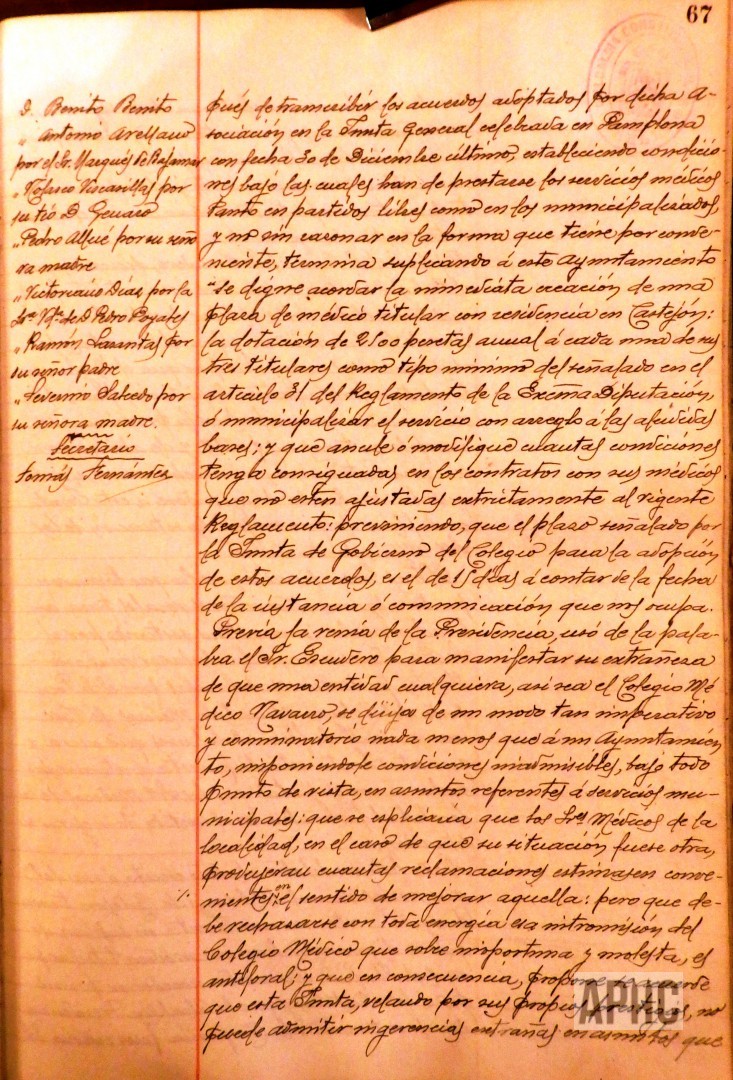 67
D. Benito Benito
" Antonio Arellano
por el Sr. Marqués de Bajamar
" Velasco Vizcasillas por
su tío D. Genaro
" Pedro Allué por su seño
ra madre
" Victoriano Días por la
Sra. Vda. de D. Pedro Poyales
" Ramón Lasantas por
su señor padre
" Severino Salcedo por
su señora madre.
Secretario
Tomás Fernández
pués de transcribir los acuerdos adoptados por dicha A-
sociación en la Junta General celebrada en Pamplona
con fecha 30 de Diciembre último, estableciendo condicio-
nes bajo las cuales han de prestarse los servicios médicos
tanto en partidos libres como en los municipalizados,
y no sin razonar en la forma que tiene por conve-
niente, termina suplicando á este Ayuntamiento
"se digne acordar la inmediata creación de una
plaza de médico titular con residencia en Castejón:
la dotación de 2500 pesetas anual á cada uno de sus
tres titulares como tipo mínimo del señalado en el
artículo 31 del Reglamento de la Excma Diputación,
ó municipalizar el servicio con arreglo á las aludidas
bases; y que anule ó modifique cuantas condiciones
tenga consignadas en los contratos con sus médicos
que no esten ajustadas extrictamente al vigente
Reglamento: previniendo, que el plazo señalado por
la Junta de Gobierno del Colegio para la adopción
de estos acuerdos, es el de 15 días á contar de la fecha
de la instancia ó communicación que nos ocupa.
Previa la venia de la Presidencia, usó de la pala-
bra el Sr. Escudero para manifestar su extrañeza
de que una entidad cualquiera, asi sea el Colegio Mé
dico Navarro, se dirija de un modo tan imperativo
y conminatorio nada menos que á un Ayuntamien
to, imponiendole condiciones inadmisibles, bajo todo
punto de vista, en asuntos referentes á servicios mu-
nicipales: que se esplicaria que los Sres Médicos de la
localidad, en el caso de que su situación fuese otra,
produjeran cuantas reclamaciones estimasen conve-
nientes en el sentido de mejorar aquella: pero que de-
be rechazarse con toda energía esa intromisión del
Colegio Médico que sobre importuna y molesta, es
antiforal; y que en consecuencia, propone se acuerde
que esta Junta, velando por sus propios prestigios, no
puede admitir ingerencias extrañas en asuntos que
APHC